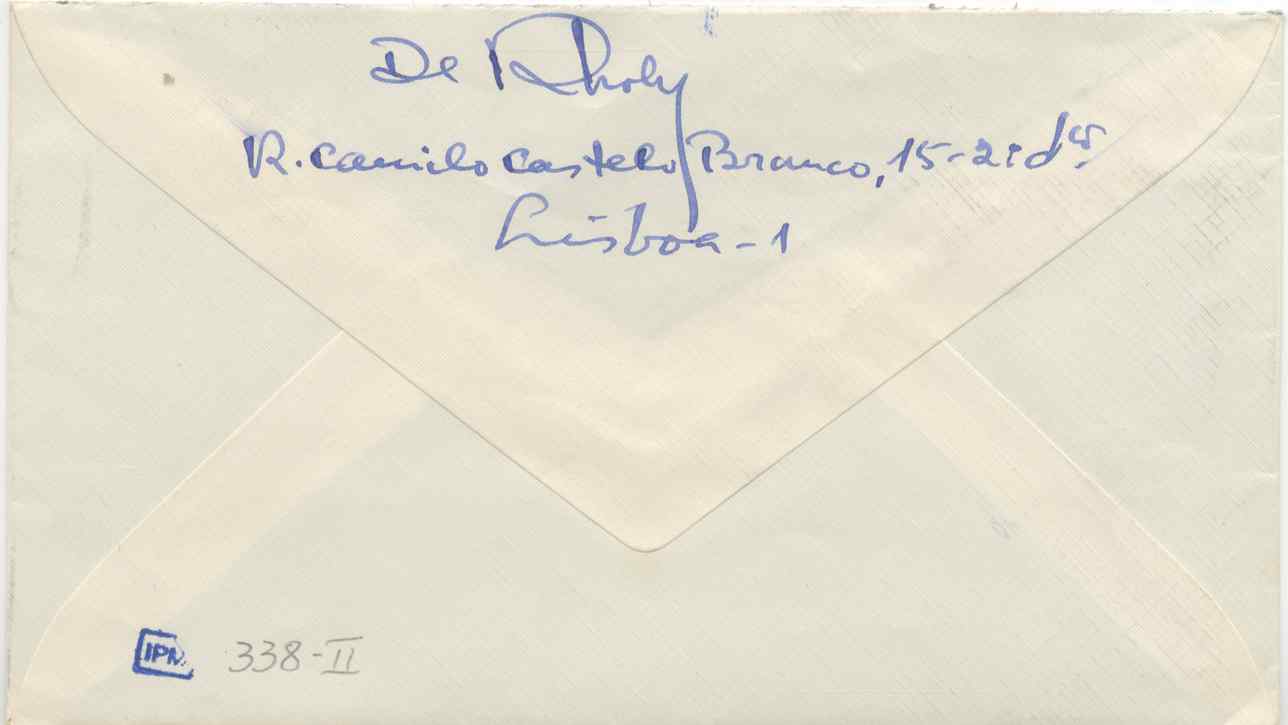 De Rholy
R. Camilo Castelo Branco, 15-2º dtº
Lisboa-1
IPM 338-II